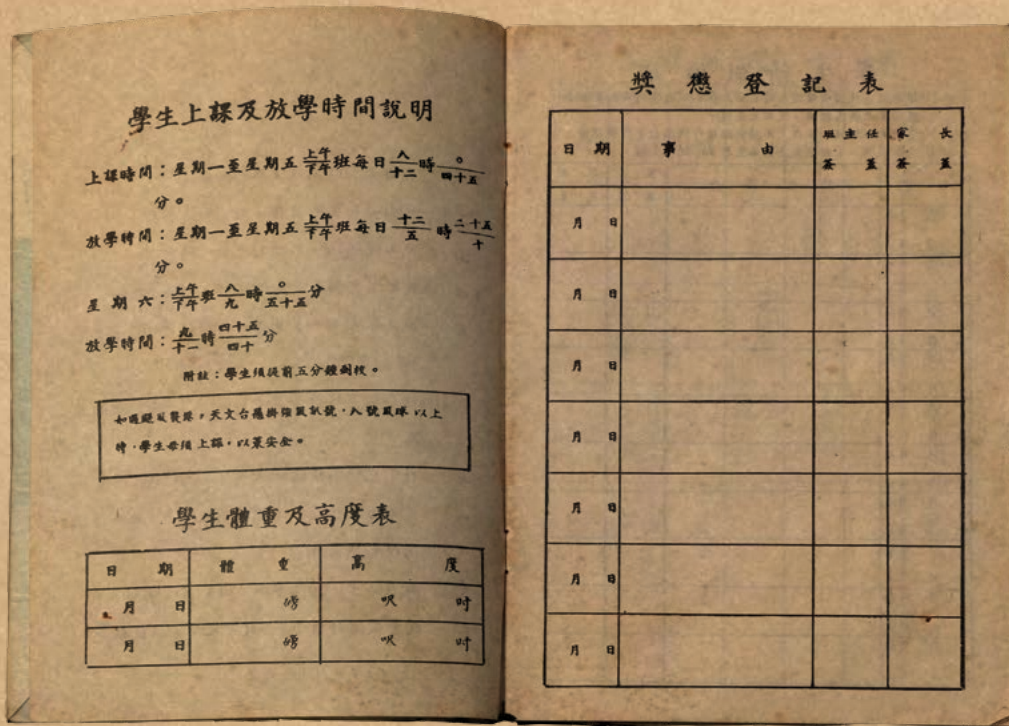 學生上課及放學時間說明
上課時間：星期一至星期五上午/下午班每日八/十二時○/四十五
分。
放學時間：星期一至星期五上午/下午班每日十二/五時二十五/十
分。
星期六：上午/下午班八/九時○/五十五分
放學時間：九/十一時四十五/四十分
附註：學生須提前五分鐘到校。
如遇颶風襲港，天文台懸掛強風訊號，八號風球以上
時，學生毋須上課，以策安全。
學生體重及高度表
日期 體重 高度
月 日 磅 呎 吋
月 日 磅 呎 吋
獎懲登記表
日期 事由 班主任簽蓋 家長簽蓋
月 日
月 日
月 日
月 日
月 日
月 日
月 日